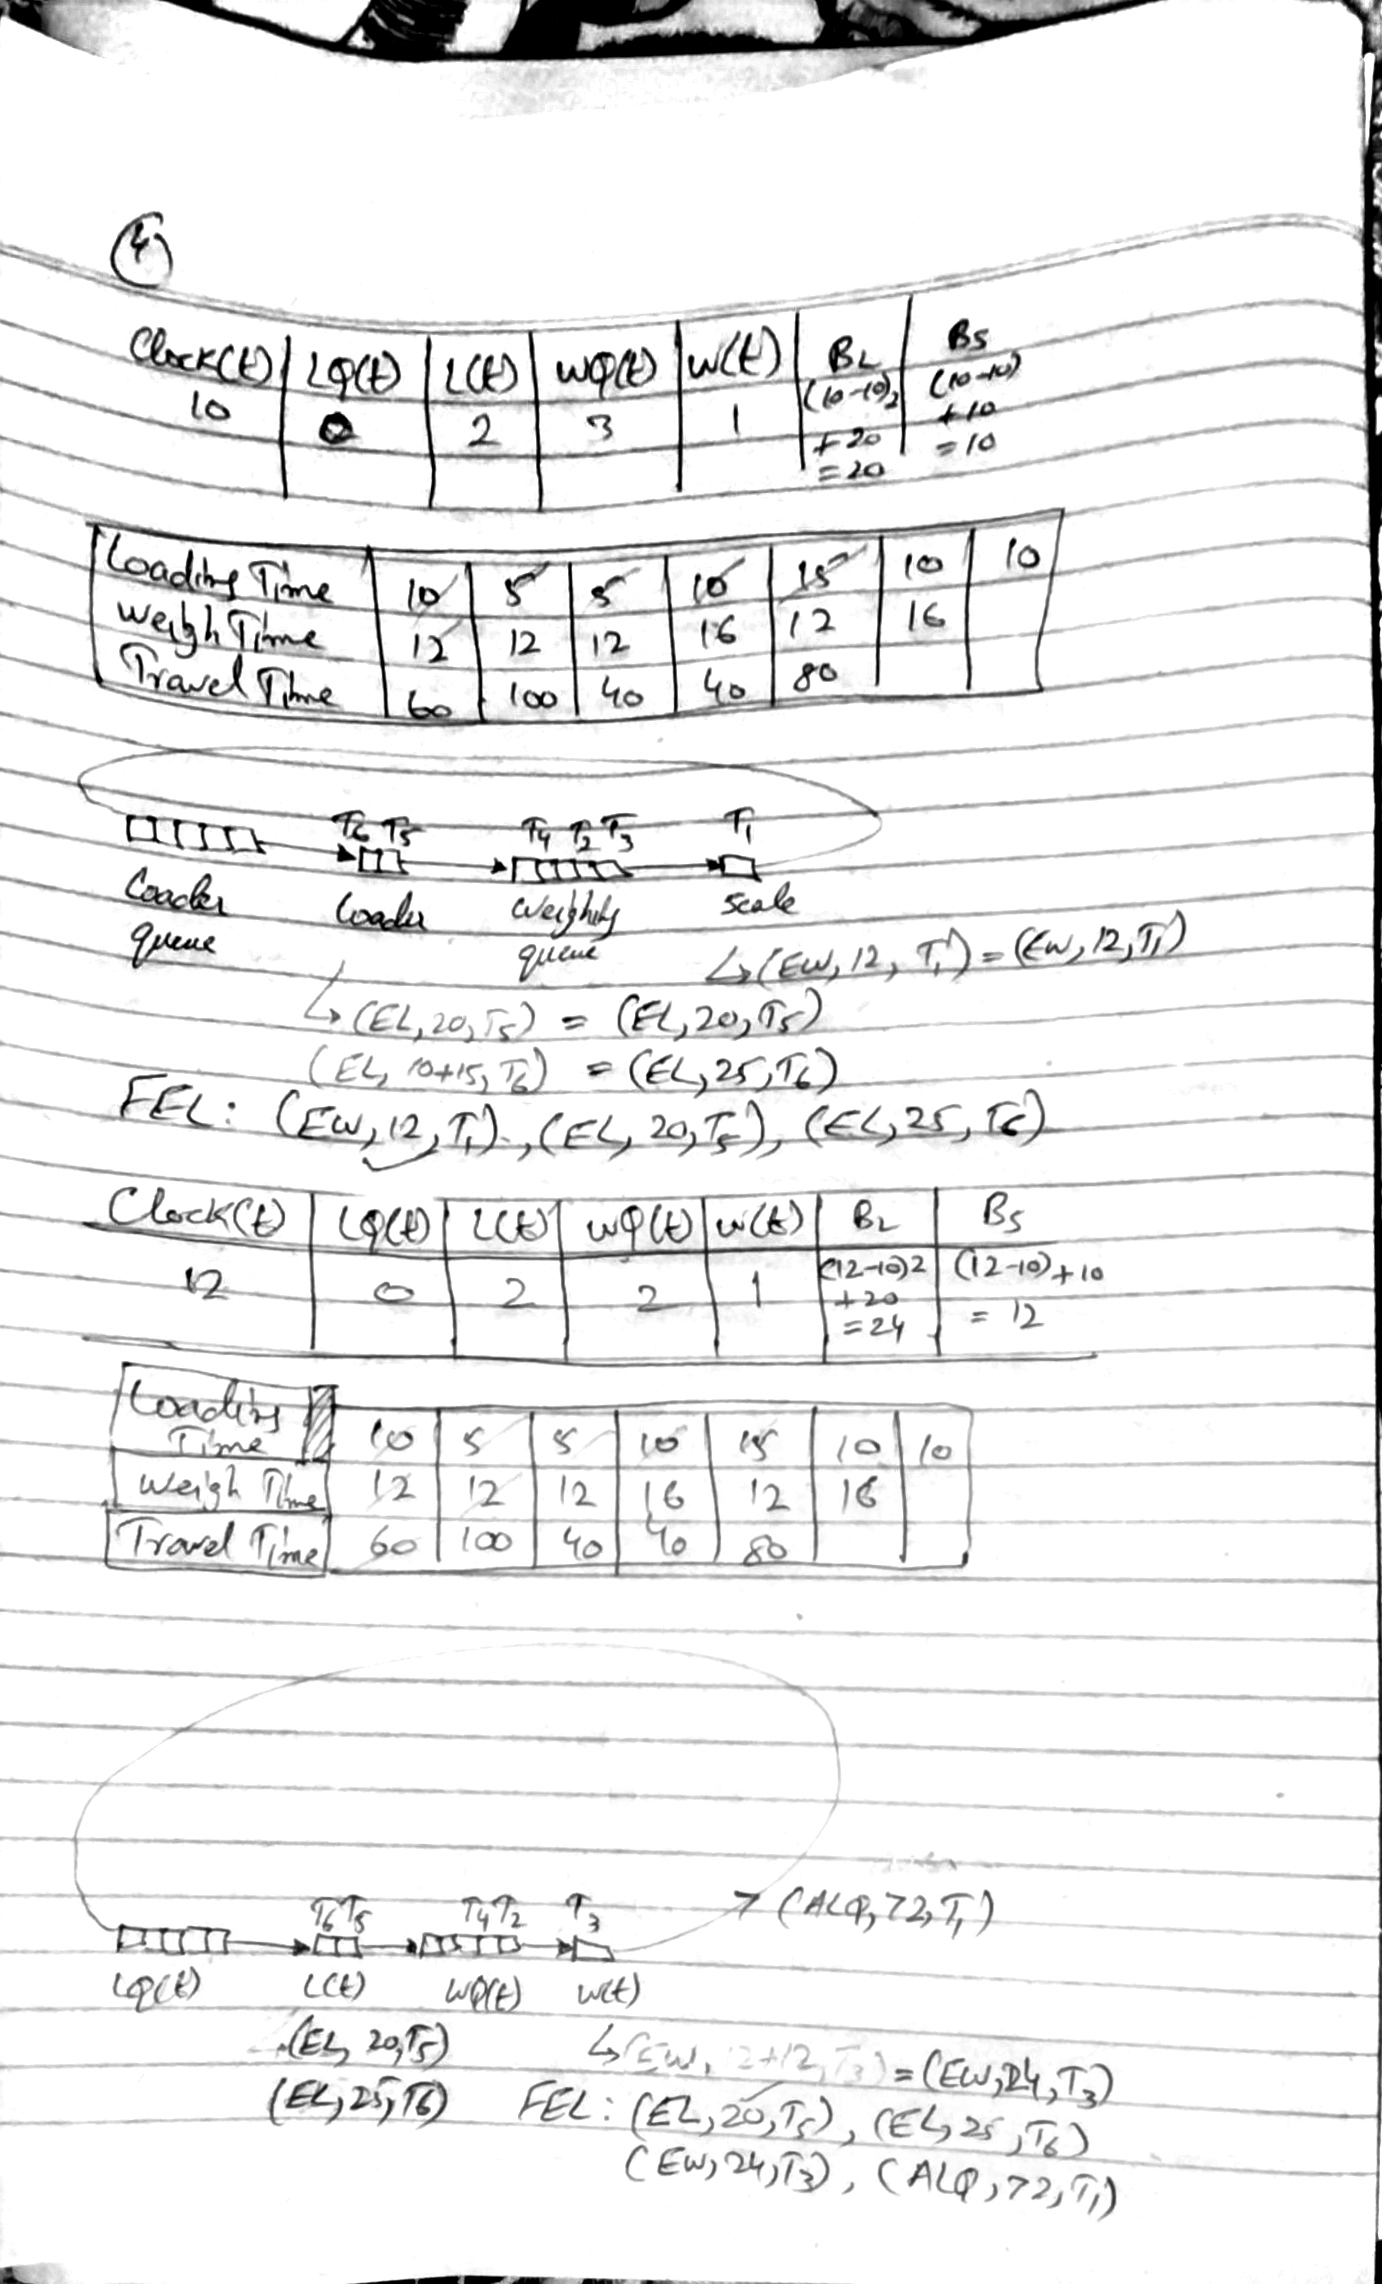 ④
Clock(t) LQ(t) L(t) WQ(t) W(t) BL BS
10 0 2 3 1 (10-10)2 + 20 = 20 (10-10) + 10 = 10
Loading Time 10 5 5 10 15 10 10
Weigh Time 12 12 12 16 12 16
Travel Time 60 100 40 40 80
T6 T5 T4 T2 T3 T1
Loader queue Loader Weighing queue Scale
↳(EW, 12, T1) = (EW, 12, T1)
↳(EL, 20, T5) = (EL, 20, T5)
(EL, 10+15, T6) = (EL, 25, T6)
FEL: (EW, 12, T1), (EL, 20, T5), (EL, 25, T6)
Clock(t) LQ(t) L(t) WQ(t) W(t) BL BS
12 0 2 2 1 (12-10)2 + 20 = 24 (12-10) + 10 = 12
Loading Time 10 5 5 10 15 10 10
Weigh Time 12 12 12 16 12 16
Travel Time 60 100 40 40 80
T6 T5 T4 T2 T3 → (ALQ, 72, T1)
LQ(t) L(t) WQ(t) W(t)
(EL, 20, T5) ↳(EW, 12+12, T3) = (EW, 24, T3)
(EL, 25, T6) FEL: (EL, 20, T5), (EL, 25, T6)
(EW, 24, T3), (ALQ, 72, T1)